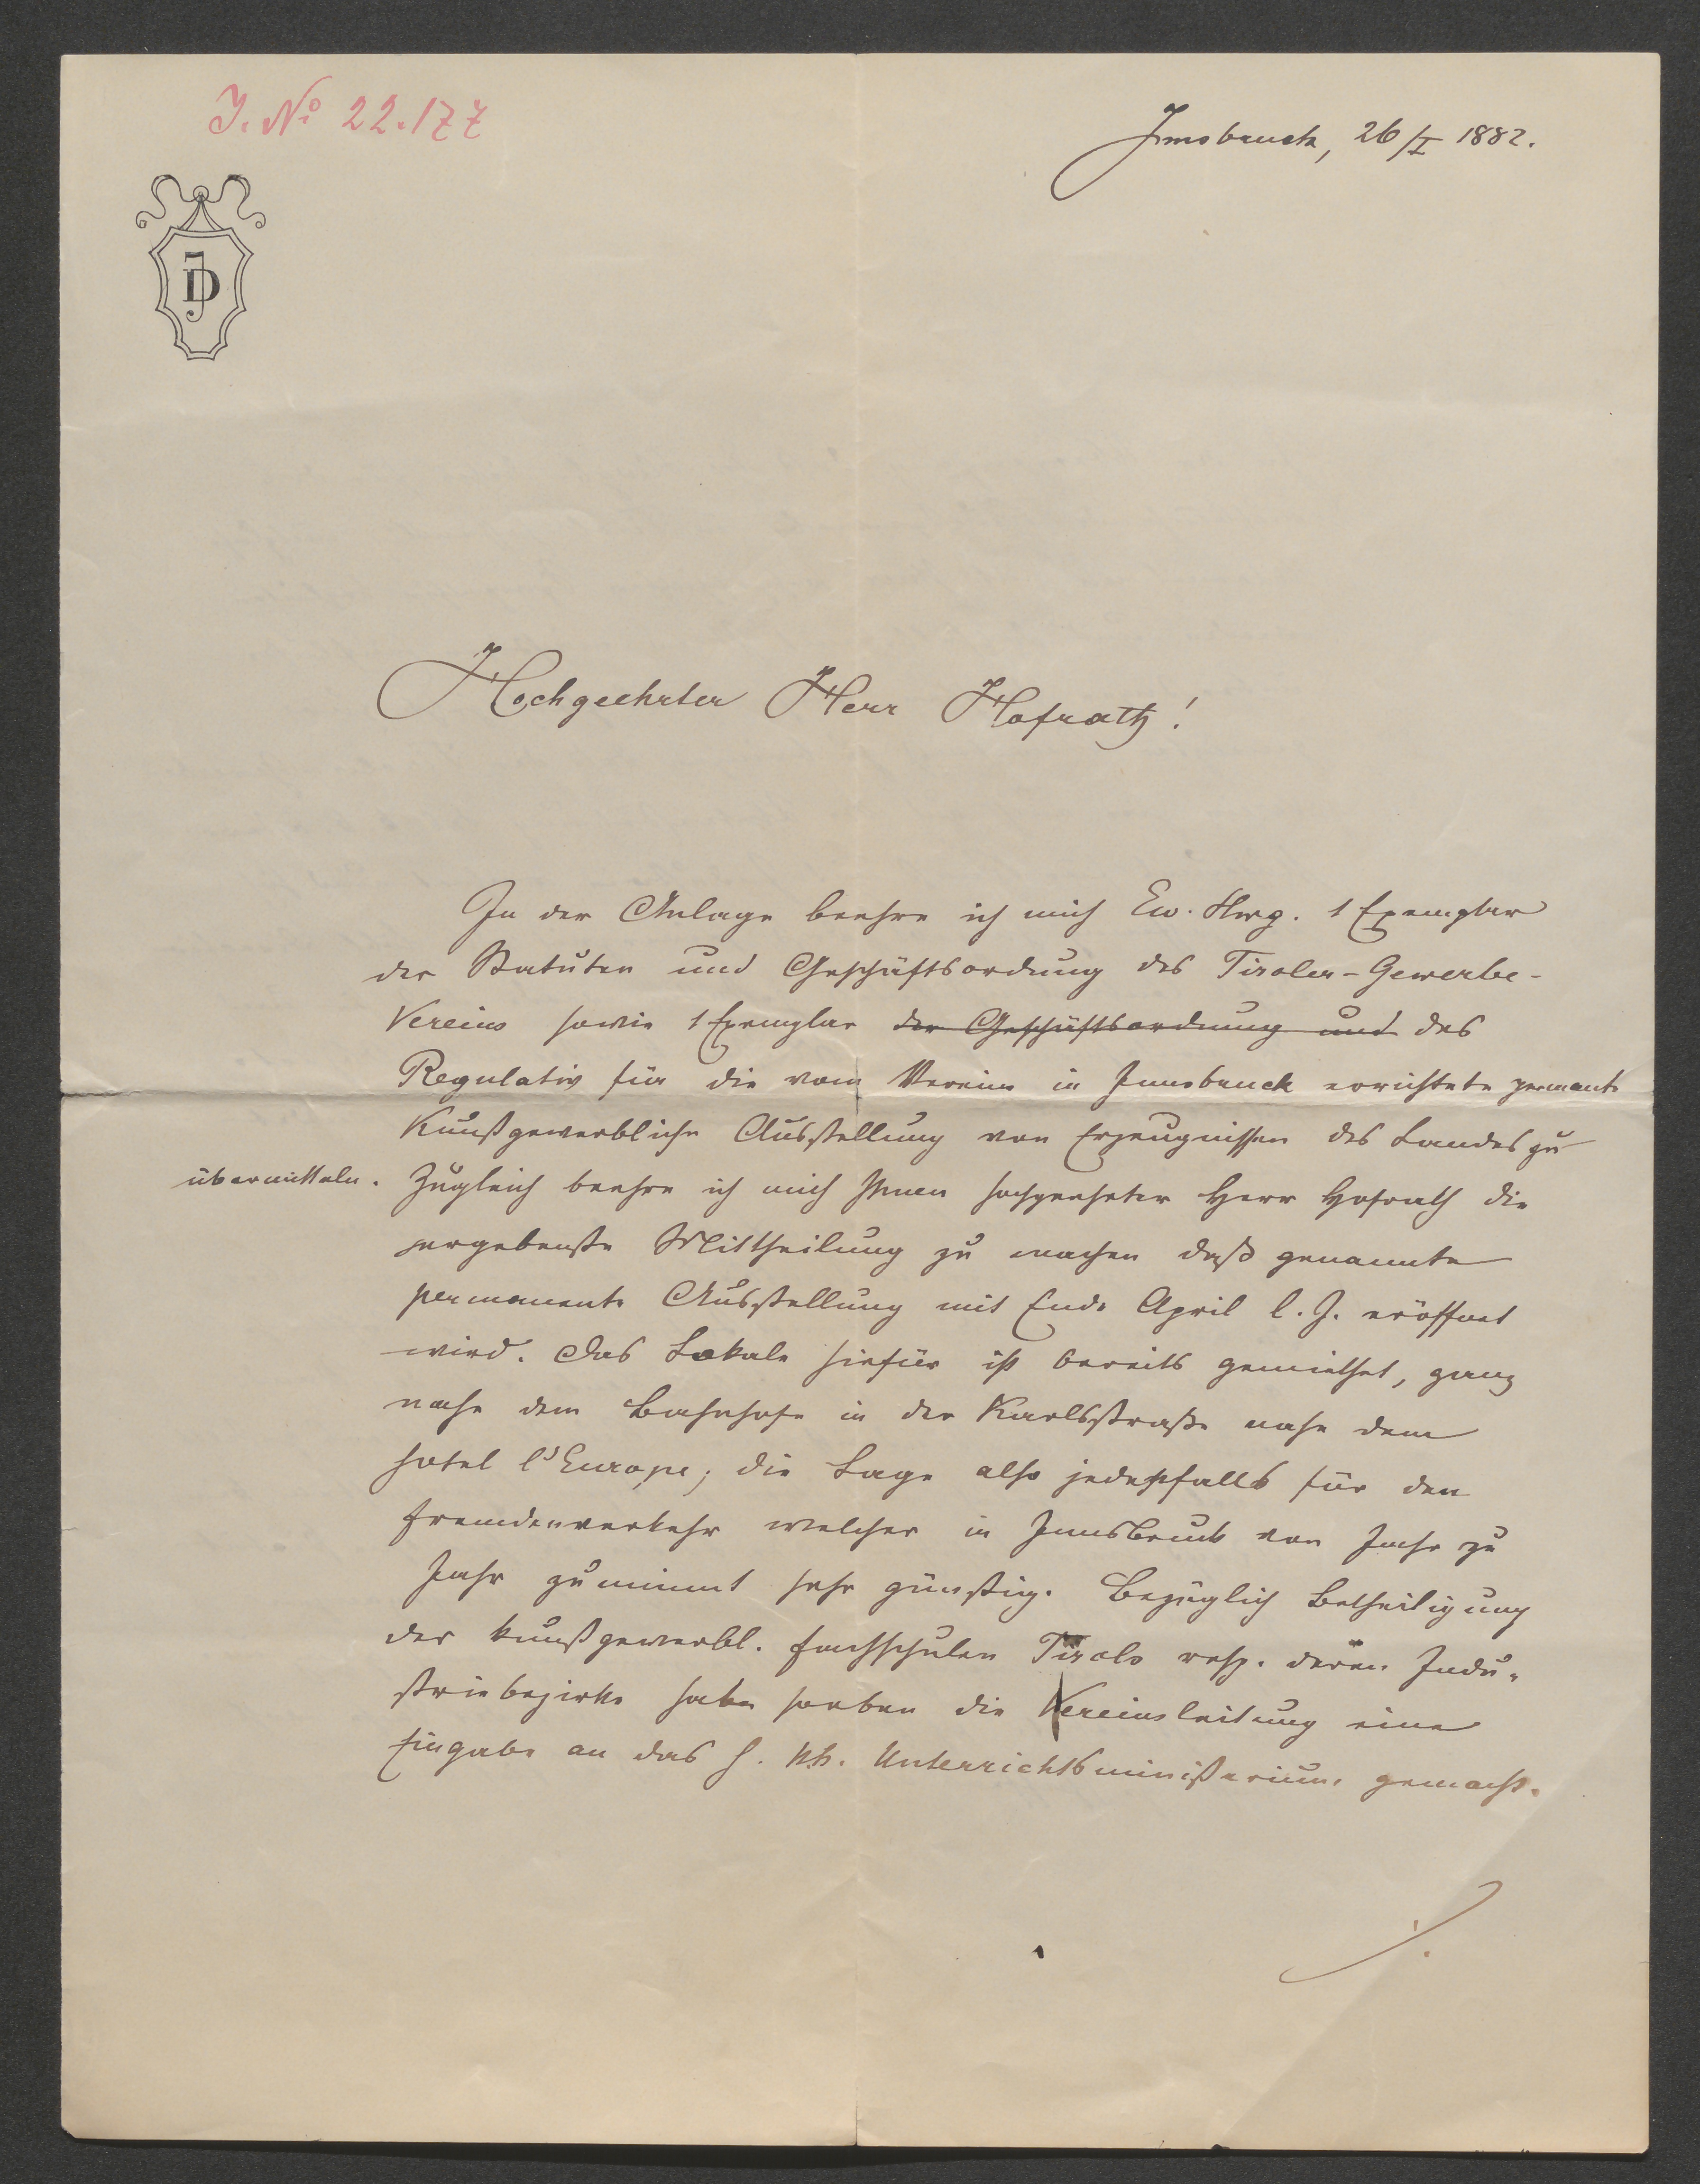 J. No 22.177
Innsbruck, 26/I 1882.
JD
Hochgeehrter Herr Hofrath!
In der Anlage beehre ich mich Ew. Hwg. 1 Exemplar
der Statuten und Geschäftsordnung des Tiroler-Gewerbe-
Vereins sowie 1 Exemplar der Geschäftsordnung und des
Regulativ für die vom Verein in Innsbruck errichtete permanente
Kunstgewerbliche Ausstellung von Erzeugnissen des Landes zu
übermitteln. Zugleich beehre ich mich Ihnen hochgeehrter Herr Hofrath die
ergebenste Mittheilung zu machen daß genannte
permanente Ausstellung mit Ende April l. J. eröffnet
wird. Das Lokale hiefür ist bereits gemiethet, ganz
nahe dem Bahnhofe in der Karlsstraße nahe dem
Hotel l'Europe; die Lage also jedesfalls für den
Fremdenverkehr welcher in Innsbruck von Jahr zu
Jahr zunimmt sehr günstig. Bezüglich Betheiligung
der kunstgewerbl. Fachschulen Tirols resp. deren Indu-
striebezirke habe soeben die Vereinsleitung eine
Eingabe an das h. k.k. Unterrichtsministerium gemacht.